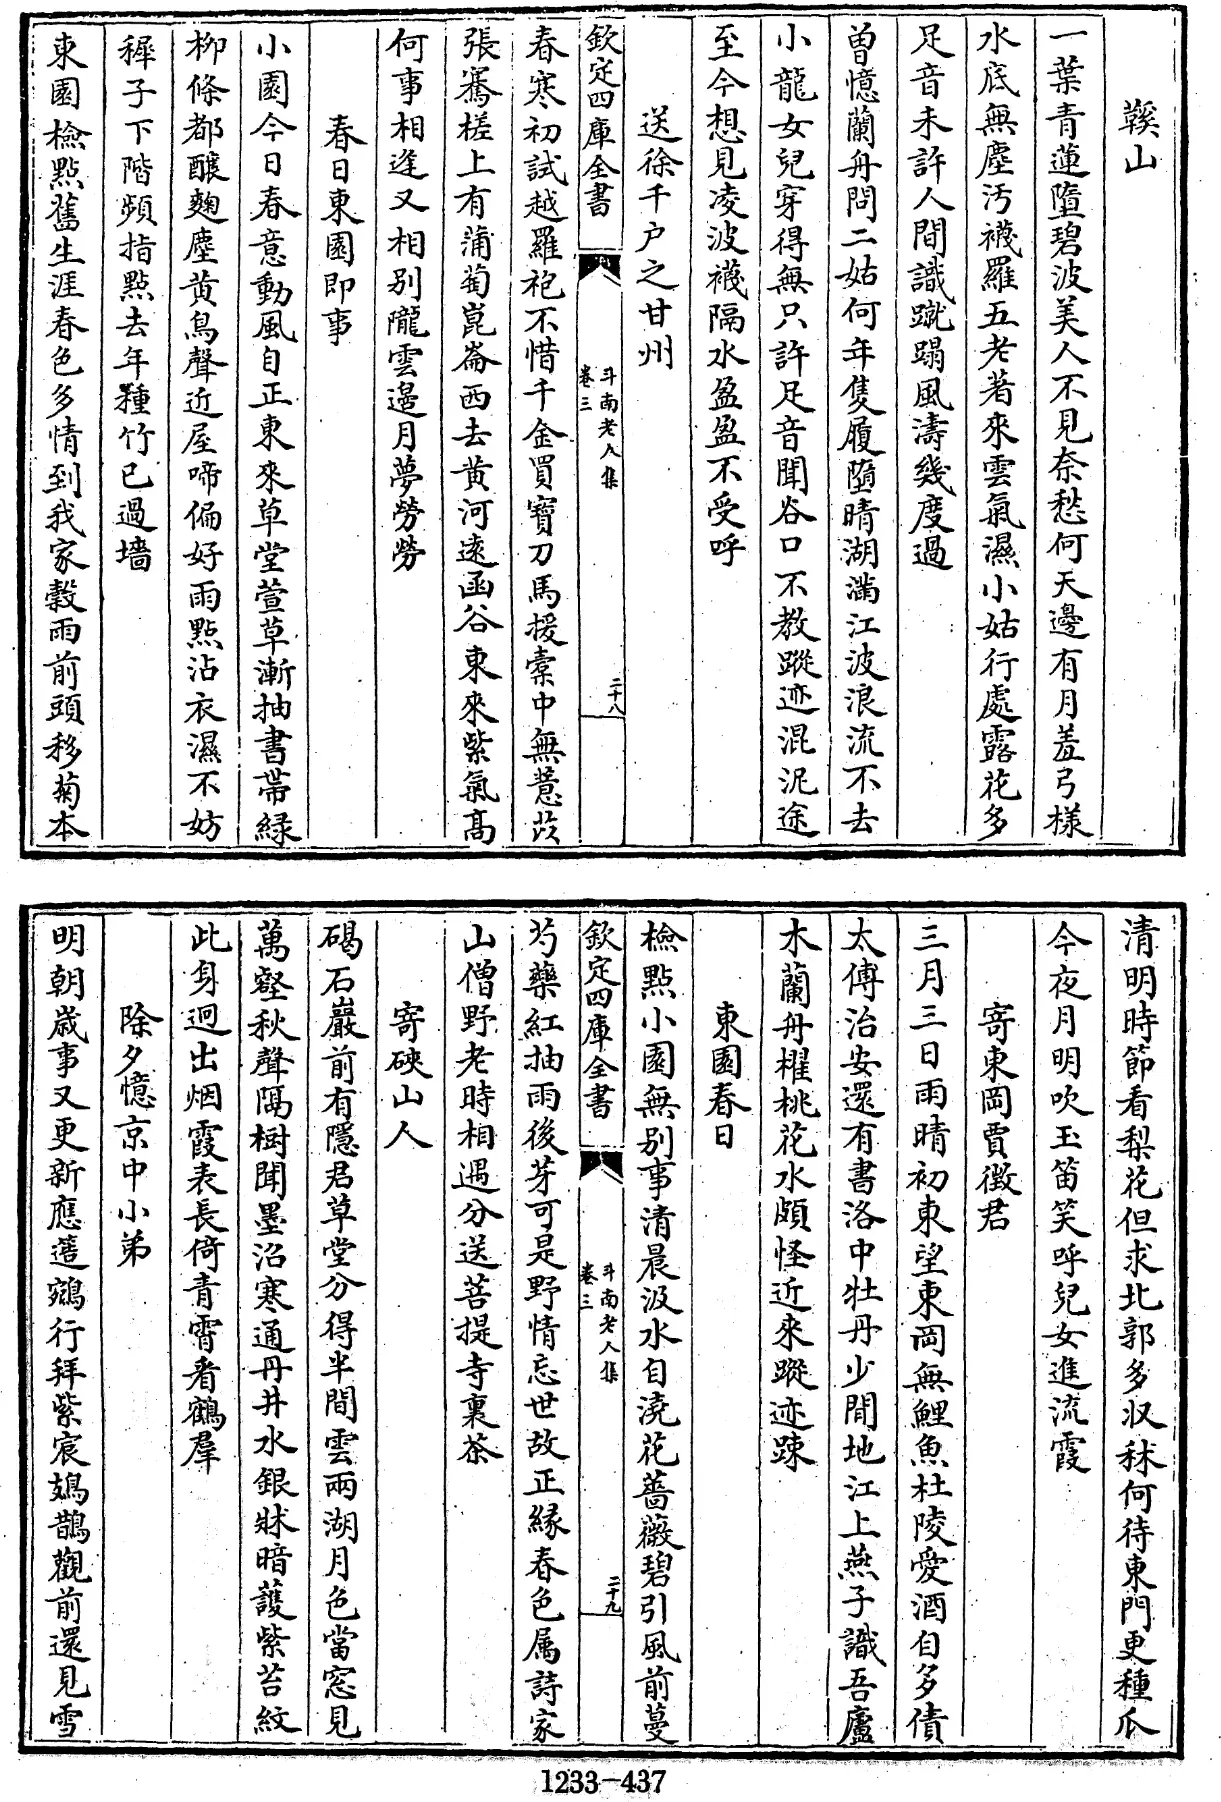 鞵山
一葉青蓮墮碧波美人不見奈愁何天邊有月羞弓様
水底無塵汚襪羅五老著來雲氣濕小姑行處露花多
足音未許人間識蹴蹋風濤幾度過
曽憶蘭舟問二姑何年隻履墮晴湖滿江波浪流不去
小龍女兒穿得無只許足音聞谷口不教蹤迹混泥途
至今想見凌波襪隔水盈盈不受呼
送徐千户之甘州
欽定四庫全書
斗南老人集
卷三
二十八
春寒初試越羅袍不惜千金買寶刀馬援槖中無薏苡
張騫槎上有蒲萄崑崙西去黄河逺函谷東來紫氣髙
何事相逢又相别隴雲邉月夢勞勞
春日東園即事
小園今日春意動風自正東來草堂萱草漸抽書帶緑
柳條都釀麴塵黄鳥聲近屋啼偏好雨點沾衣濕不妨
稺子下階頻指點去年種竹已過墻
東園檢點舊生涯春色多情到我家穀雨前頭移菊本
清明時節看梨花但求北郭多収秫何待東門更種瓜
今夜月明吹玉笛笑呼兒女進流霞
寄東岡賈徴君
三月三日雨晴初東望東岡無鯉魚杜陵愛酒自多債
太傅治安還有書洛中牡丹少閒地江上燕子識吾廬
木蘭舟櫂桃花水頗怪近來蹤迹踈
東園春日
檢點小園無别事清晨汲水自澆花薔薇碧引風前蔓
欽定四庫全書
斗南老人集
卷三
二十九
芍藥紅抽雨後芽可是野情忘世故正縁春色属詩家
山僧野老時相遇分送菩提寺裏茶
寄硤山人
碣石巖前有隱君草堂分得半間雲兩湖月色當窓見
萬壑秋聲隔樹聞墨沼寒通丹井水銀牀暗護紫苔紋
此身迥出烟霞表長倚青霄看鶴羣
除夕憶京中小弟
明朝嵗事又更新應簉鵷行拜紫宸鳷鵲觀前還見雪
1233-437